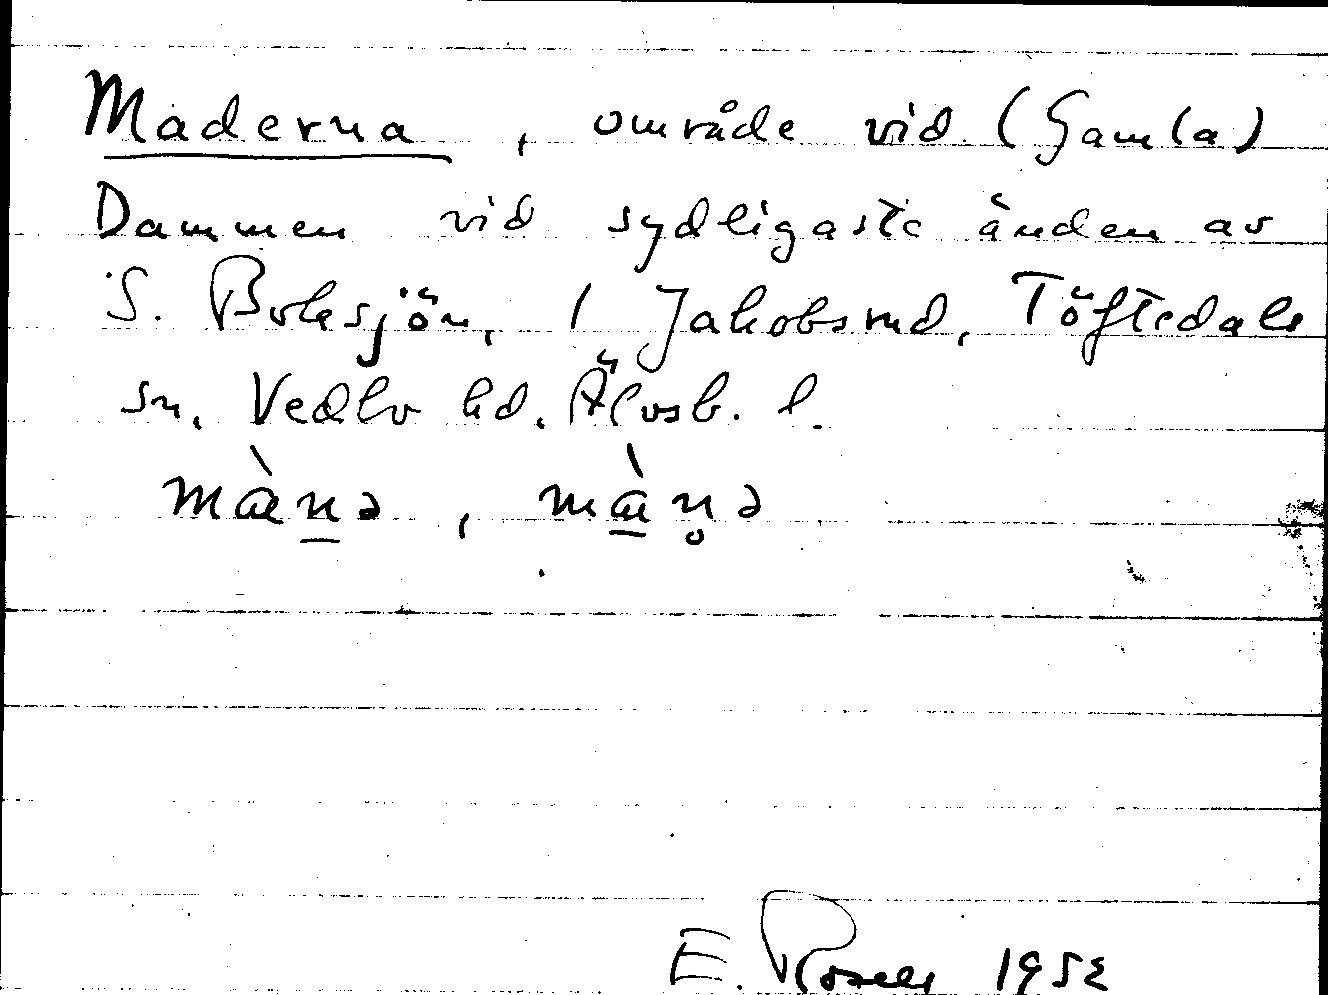 Maderna, område vid (Gamla)
Dammen vid sydligaste änden av
S. Bolesjön, 1 Jakobsrud, Töftedals
sn. Vedbo hd. Älvsb. l.
mæ̀nə, mæ̀n̥ə
E. Rosell 1952